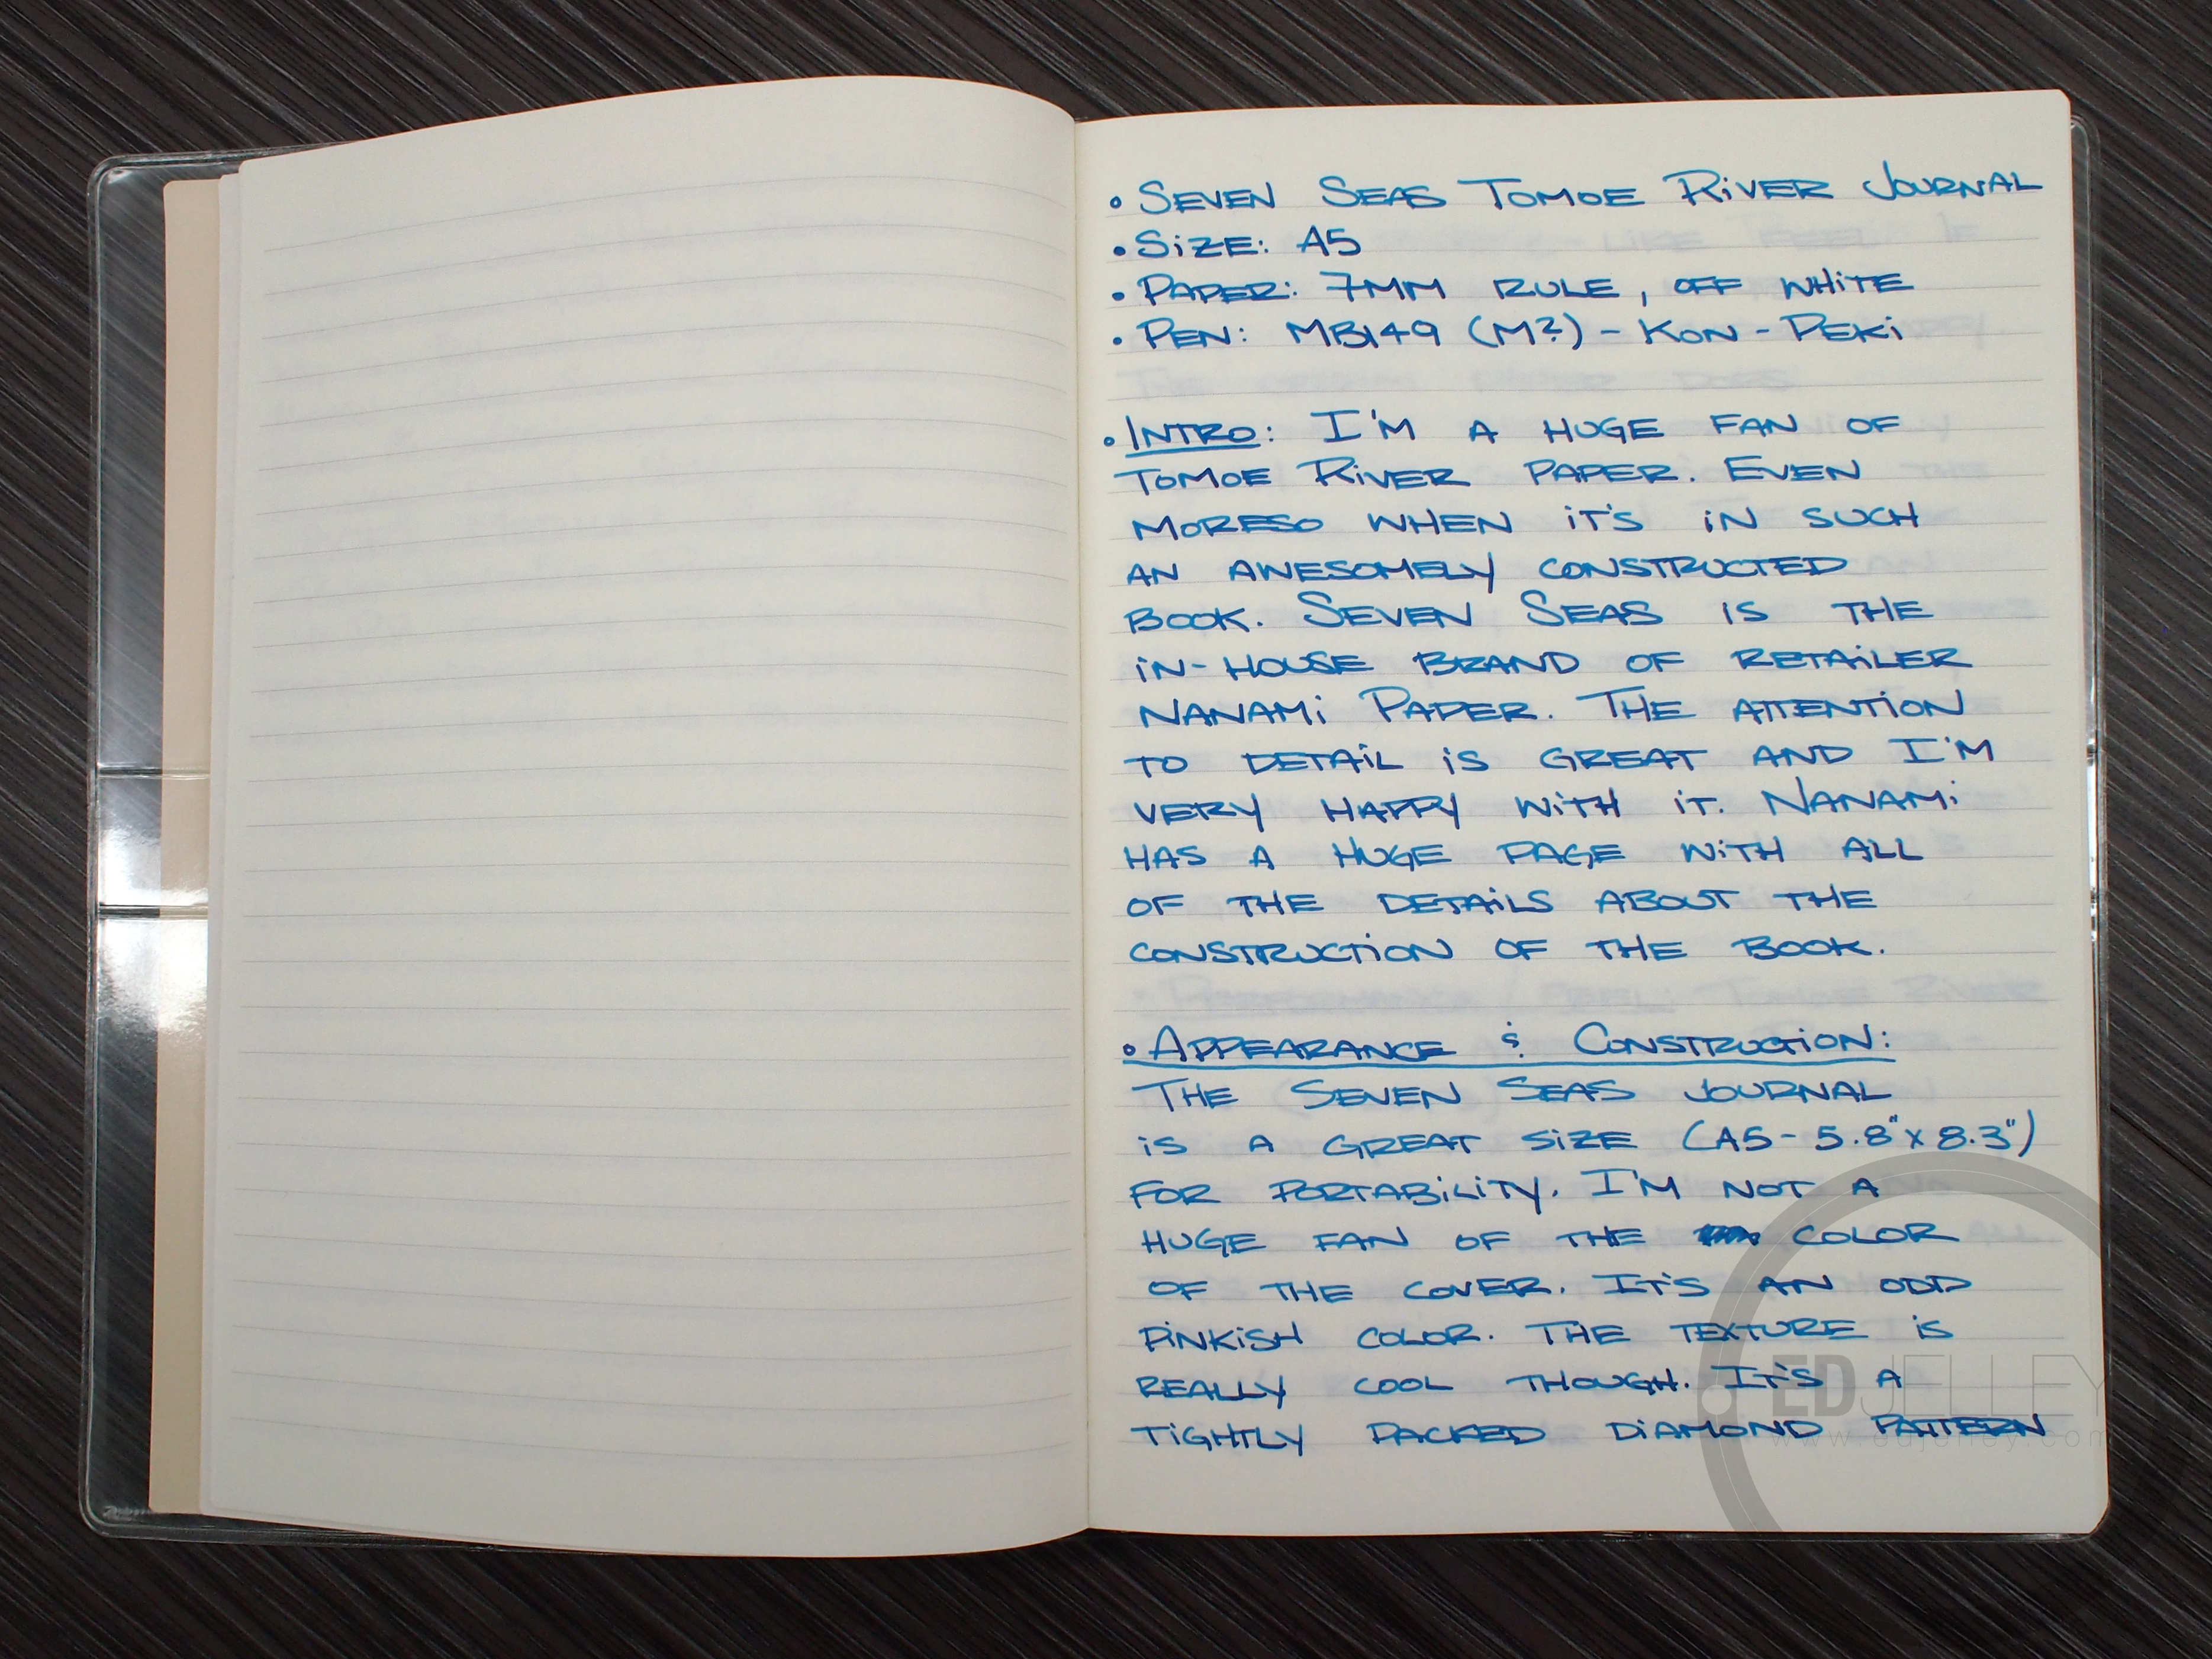 • SEVEN SEAS TOMOE RiVER JOURNAL
• SiZE: A5
• PAPER: 7MM RULE, OFF WHiTE
• PEN: MB149 (M?) - KON-PEKi
• INTRO: I'M A HUGE FAN OF
TOMOE RiVER PAPER. EVEN
MORESO WHEN iT'S iN SUCH
AN AWESOMELY CONSTRUCTED
BOOK. SEVEN SEAS IS THE
iN-HOUSE BRAND OF RETAiLER
NANAMi PAPER. THE ATTENTiON
TO DETAiL iS GREAT AND I'M
VERY HAPPY WiTH iT. NANAMi
HAS A HUGE PAGE WiTH ALL
OF THE DETAiLS ABOUT THE
CONSTRUCTiON OF THE BOOK.
• APPEARANCE & CONSTRUCTiON:
THE SEVEN SEAS JOURNAL
iS A GREAT SiZE (A5 - 5.8" x 8.3")
FOR PORTABiLiTY. I'M NOT A
HUGE FAN OF THE COLOR
OF THE COVER. IT'S AN ODD
PiNKiSH COLOR. THE TEXTURE iS
REALLY COOL THOUGH. IT'S A
EDJELLEY
TiGHTLY PACKED DiAMOND PATTERN
www.edjelley.com